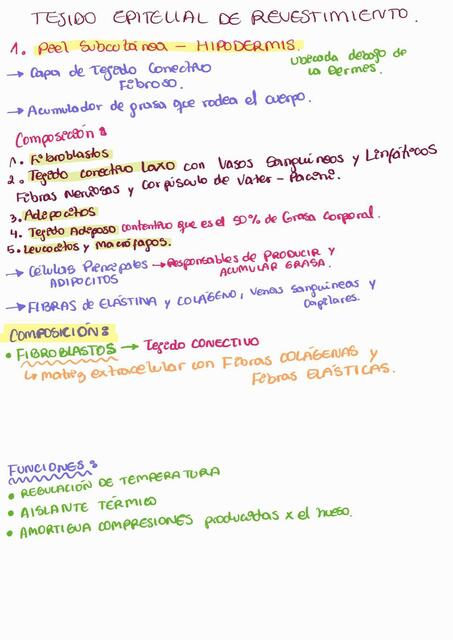 TEJIDO EPITELIAL DE REVESTIMIENTO.
1. Peel Subcutánea - HIPODERMIS.
Ubicada debajo de
la Dermis.
→ Capa de Tejido Conectivo
Fibroso.
→ Acumulador de grasa que rodea el cuerpo.
Composición:
1. Fibroblastos
2. Tejido conectivo Laxo con Vasos Sanguíneos y Linfáticos
Fibras Nerviosas y Corpúsculo de Vater-Pacini.
3. Adipocitos
4. Tejido Adiposo contentivo que es el 50% de Grasa Corporal.
5. Leucocitos y Macrófagos.
→ Células Principales → Responsables de PRODUCIR y
ADIPOCITOS ACUMULAR GRASA.
→ FIBRAS de ELASTINA y COLÁGENO, Venas Sanguíneas y
Capilares.
COMPOSICIÓN:
• FIBROBLASTOS → Tejido CONECTIVO
↳ matriz extracelular con Fibras COLÁGENAS y
Fibras ELÁSTICAS.
FUNCIONES:
• REGULACIÓN DE TEMPERATURA
• AISLANTE TÉRMICO
• AMORTIGUA COMPRESIONES producidas x el hueso.